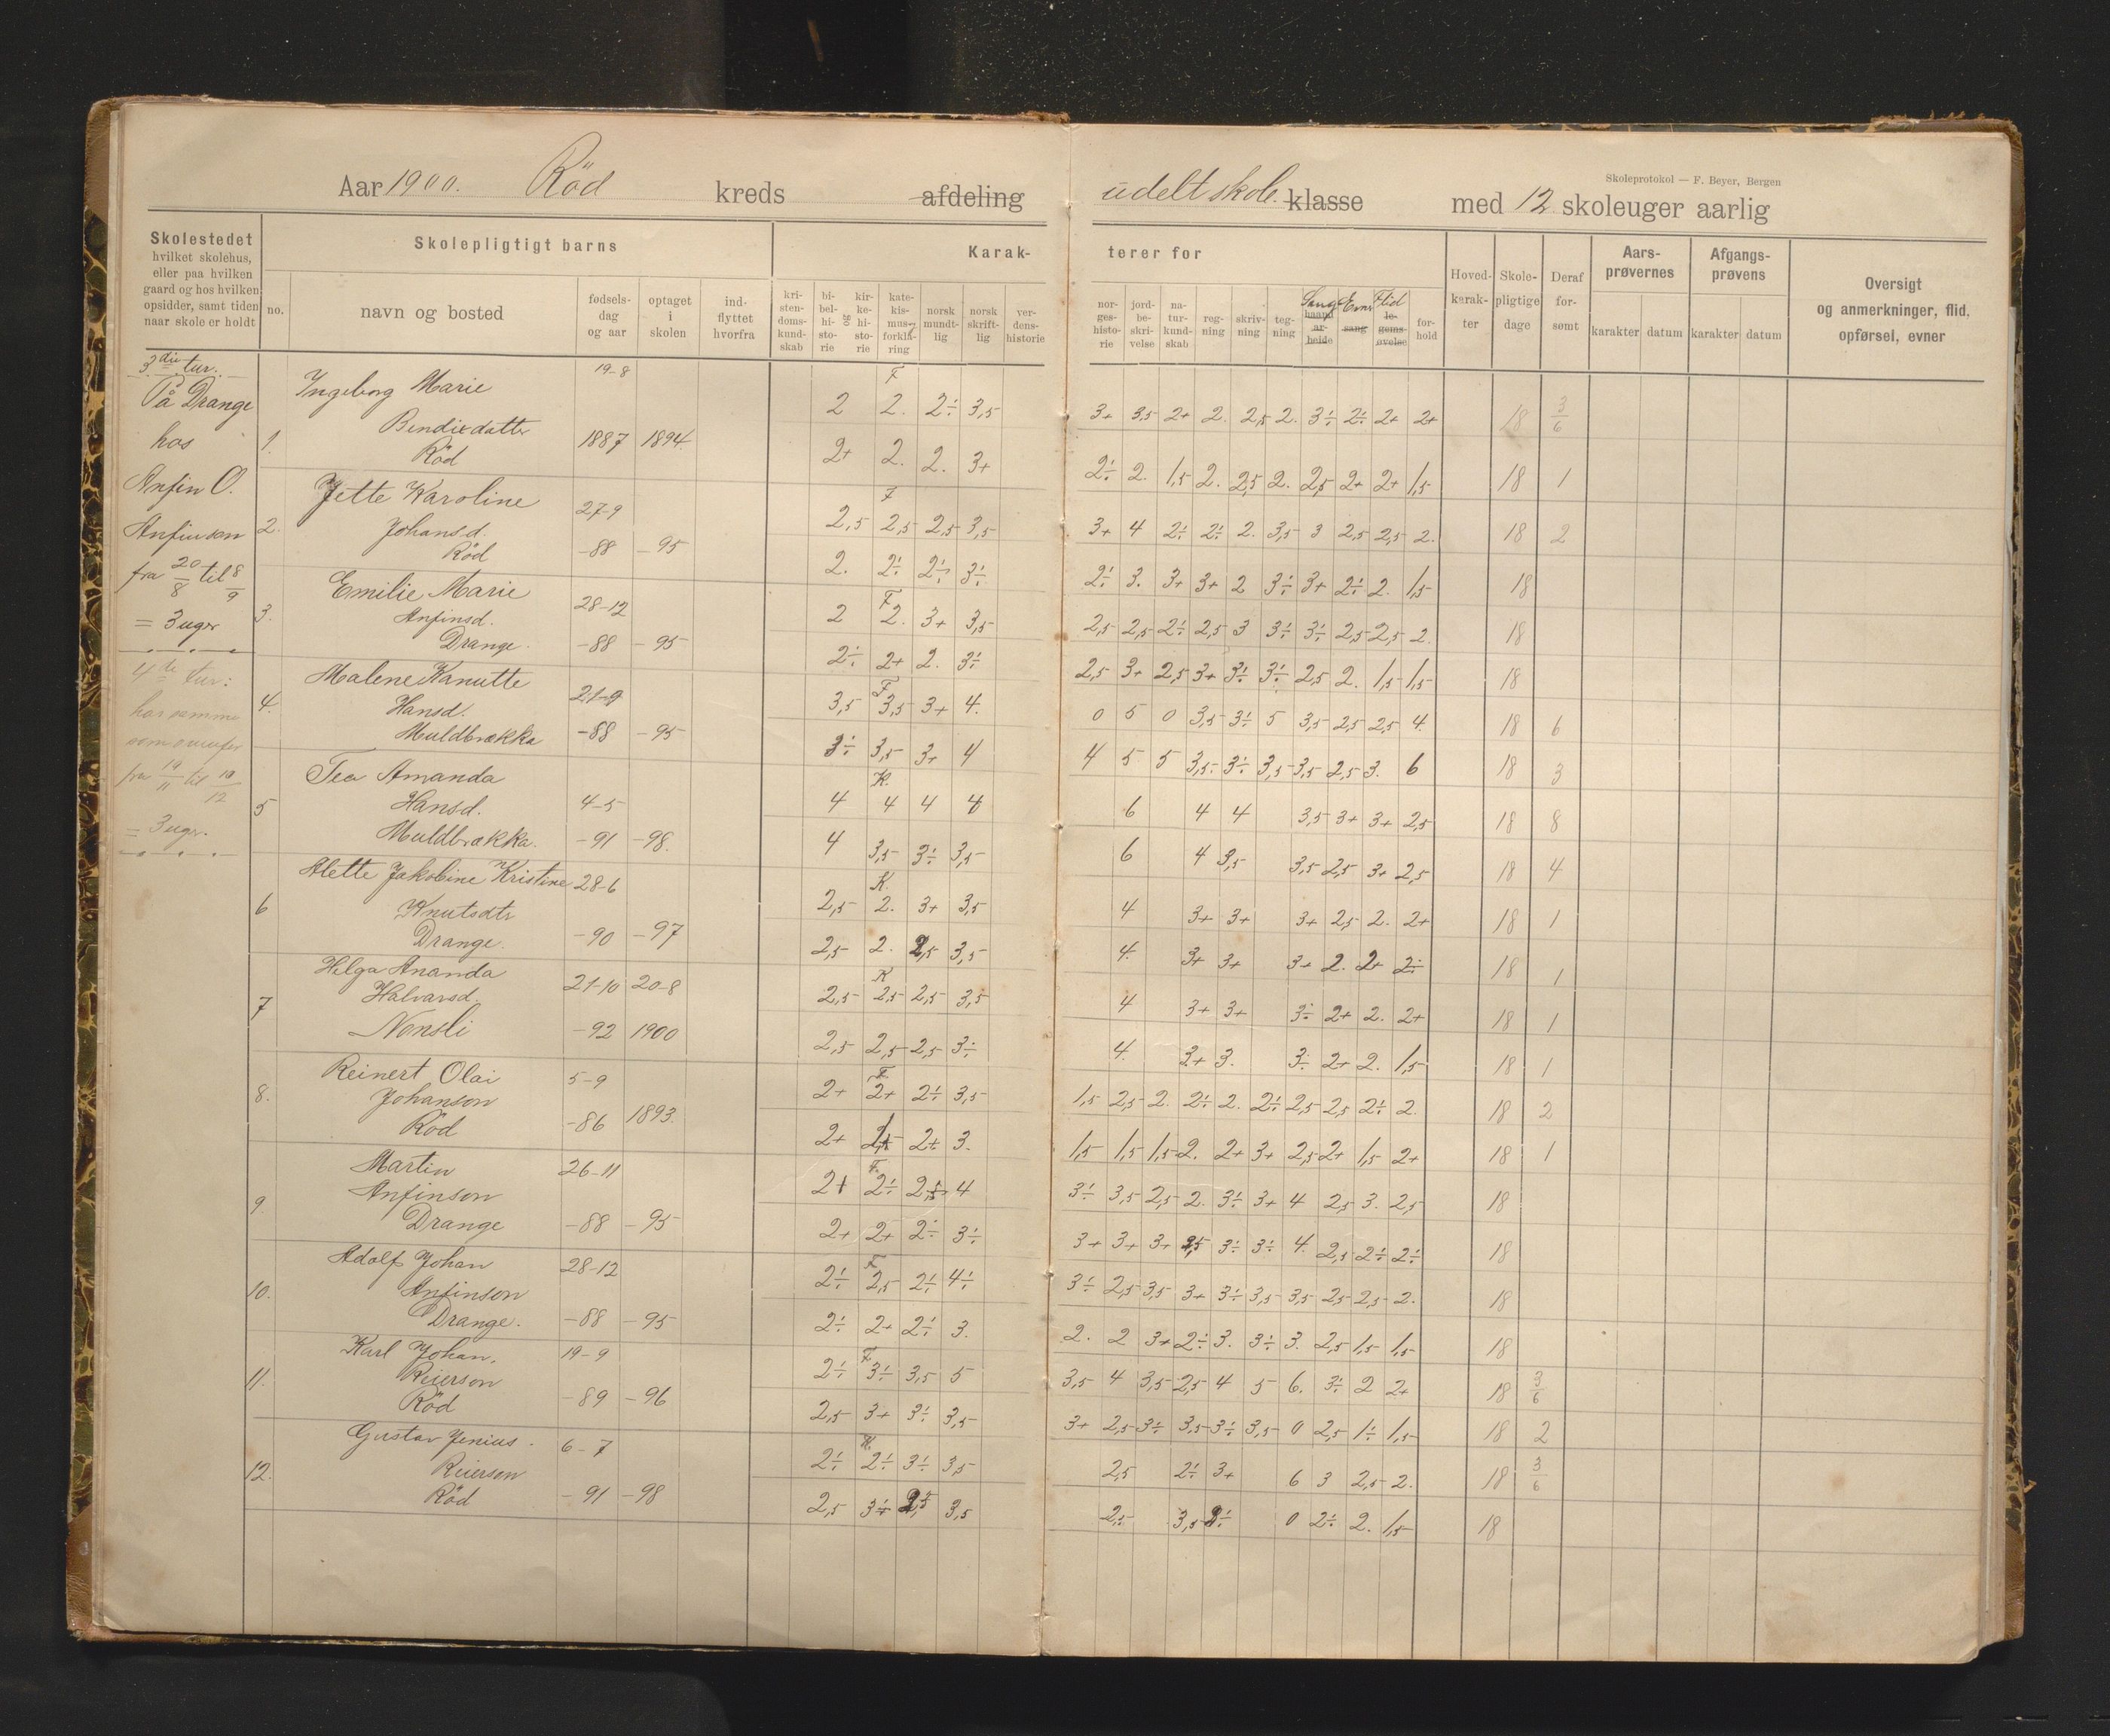 Skoleprotokol — F. Beyer, Bergen
Aar 1900. Röd kreds afdeling udelt skole. klasse med 12 skoleuger aarlig
Skolestedet
hvilket skolehus,
eller paa hvilken
gaard og hos hvilken
opsidder, samt tiden
naar skole er holdt
no.
Skolepligtigt barns
navn og bosted
fødsels-
dag
og aar
optaget
i
skolen
ind-
flyttet
hvorfra
Karak-
terer for
kri-
sten-
doms-
kund-
skab
bi-
bel-
hi-
sto-
rie
og
kir-
ke-
hi-
sto-
rie
kate-
kis-
mus,
forkla-
ring
norsk
mundt-
lig
norsk
skrift-
lig
ver-
dens-
historie
nor-
ges-
histo-
rie
jord-
be-
skri-
velse
na-
tur-
kund-
skab
reg-
ning
skriv-
ning
teg-
ning
Sang
haand
ar-
beide
Evner
sang
Flid
le-
gems-
øvelse
for-
hold
Hoved-
karak-
ter
Skole-
pligtige
dage
Deraf
for-
sømt
Aars-
prøvernes
karakter datum
Afgangs-
prøvens
karakter datum
Oversigt
og anmerkninger, flid,
opførsel, evner
3die tur.
På Drange
hos
Anfin O.
Anfinsen
fra 20/8 til 8/9
= 3 uger
4de tur:
har samme
som ovenfor
fra 19/11 til 10/12
= 3 uger.
1. Ingeborg Marie 19-8
Bendixdatter
Röd 1887 1894.
F
2 2. 2÷ 3,5 3+ 3,5 2+ 2. 2,5 2. 3÷ 2÷ 2+ 2+ 18 3/6
2+ 2. 2. 3+ 2÷ 2. 1,5 2. 2,5 2. 2,5 2+ 2+ 1,5 18 1
2. Jette Karoline 27-9
Johansd.
Röd -88 -95
F
2,5 2,5 2,5 3,5 3+ 4 2÷ 2÷ 2. 3,5 3 2,5 2,5 2. 18 2
2. 2÷ 2÷ 3÷ 2÷ 3. 3+ 3+ 2 3÷ 3+ 2÷ 2. 1,5 18
3. Emilie Marie 28-12
Anfinsd.
Drange. -88 -95
F
2 2. 3+ 3,5 2,5 2,5 2÷ 2,5 3 3÷ 3÷ 2,5 2,5 2. 18
2÷ 2+ 2. 3÷ 2,5 3+ 2,5 3+ 3÷ 3÷ 2,5 2. 1,5 1,5 18
4. Malene Kanutte 21-9
Hansd.
Muldbrækka -88 -95
F
3,5 3,5 3+ 4. 0 5 0 3,5 3÷ 5 3,5 2,5 2,5 4. 18 6
3÷ 3,5 3+ 4 4 5 5 3,5 3÷ 3,5 3,5 2,5 3. 6 18 3
5 Tea Amanda
Hansd. 4-5
Muldbrækka. -91 -98.
K.
4 4 4 4 6 4 4 3,5 3+ 3+ 2,5 18 8
4 3,5 3÷ 3,5 6 4 3,5 3,5 2,5 3+ 2,5 18 4
6 Alette Jakobine Kristine 28-6
Knutsdtr
Drange. -90 -97
K.
2,5 2. 3+ 3,5 4 3+ 3+ 3+ 2,5 2. 2+ 18 1
2,5 2. 2,5 3,5 4. 3+ 3+ 3+ 2. 2+ 2÷ 18 1
7 Helga Ananda 21-10 20-8
Halvarsd.
Nonsli -92 1900
K
2,5 2,5 2,5 3,5 4 3+ 3+ 3÷ 2+ 2. 2+ 18 1
2,5 2,5 2,5 3÷ 4. 3+ 3. 3÷ 2+ 2. 1,5 18 1
8. Reinert Olai 5-9
Johanson
Röd -86 1893.
F.
2+ 2+ 2÷ 3,5 1,5 2,5 2. 2÷ 2. 2÷ 2,5 2,5 2÷ 2. 18 2
2+ 2+ 3. 1,5 1,5 1,5 2. 2+ 3+ 2,5 2+ 1,5 2+ 18 1
9. Martin 26-11
Anfinson
Drange -88 -95
F.
2+ 2÷ 4 3÷ 3,5 2,5 2. 3÷ 3+ 4 2,5 3. 2,5 18
2+ 2+ 2÷ 3÷ 3+ 3+ 3+ 3÷ 3÷ 4. 2,5 2÷ 2÷ 18
10. Adolf Johan 28-12
Anfinson
Drange. -88 -95
F
2÷ 2,5 2÷ 4÷ 3÷ 2,5 3,5 3+ 3÷ 3,5 3,5 2,5 2,5 2. 18
2÷ 2+ 2÷ 3. 2. 2 3+ 2÷ 3. 3÷ 3. 2,5 1,5 1,5 18
11. Karl Johan. 19-9
Reierson
Röd -89 -96
F
2÷ 3÷ 3,5 5 3,5 4 3,5 2,5 4 5 6. 3÷ 2 2+ 18 3/6
2,5 3+ 3÷ 3,5 3+ 2,5 3÷ 3,5 3÷ 3,5 0 2,5 1÷ 1,5 18 2
12. Gustav Jenius. 6-7
Reierson
Röd -91 -98
K.
2÷ 2÷ 3÷ 3,5 2,5 2÷ 3+ 6 3 2,5 2. 18 3/6
2,5 3÷ 3,5 2÷ 3,5 2÷ 0 2÷ 2. 1,5 18